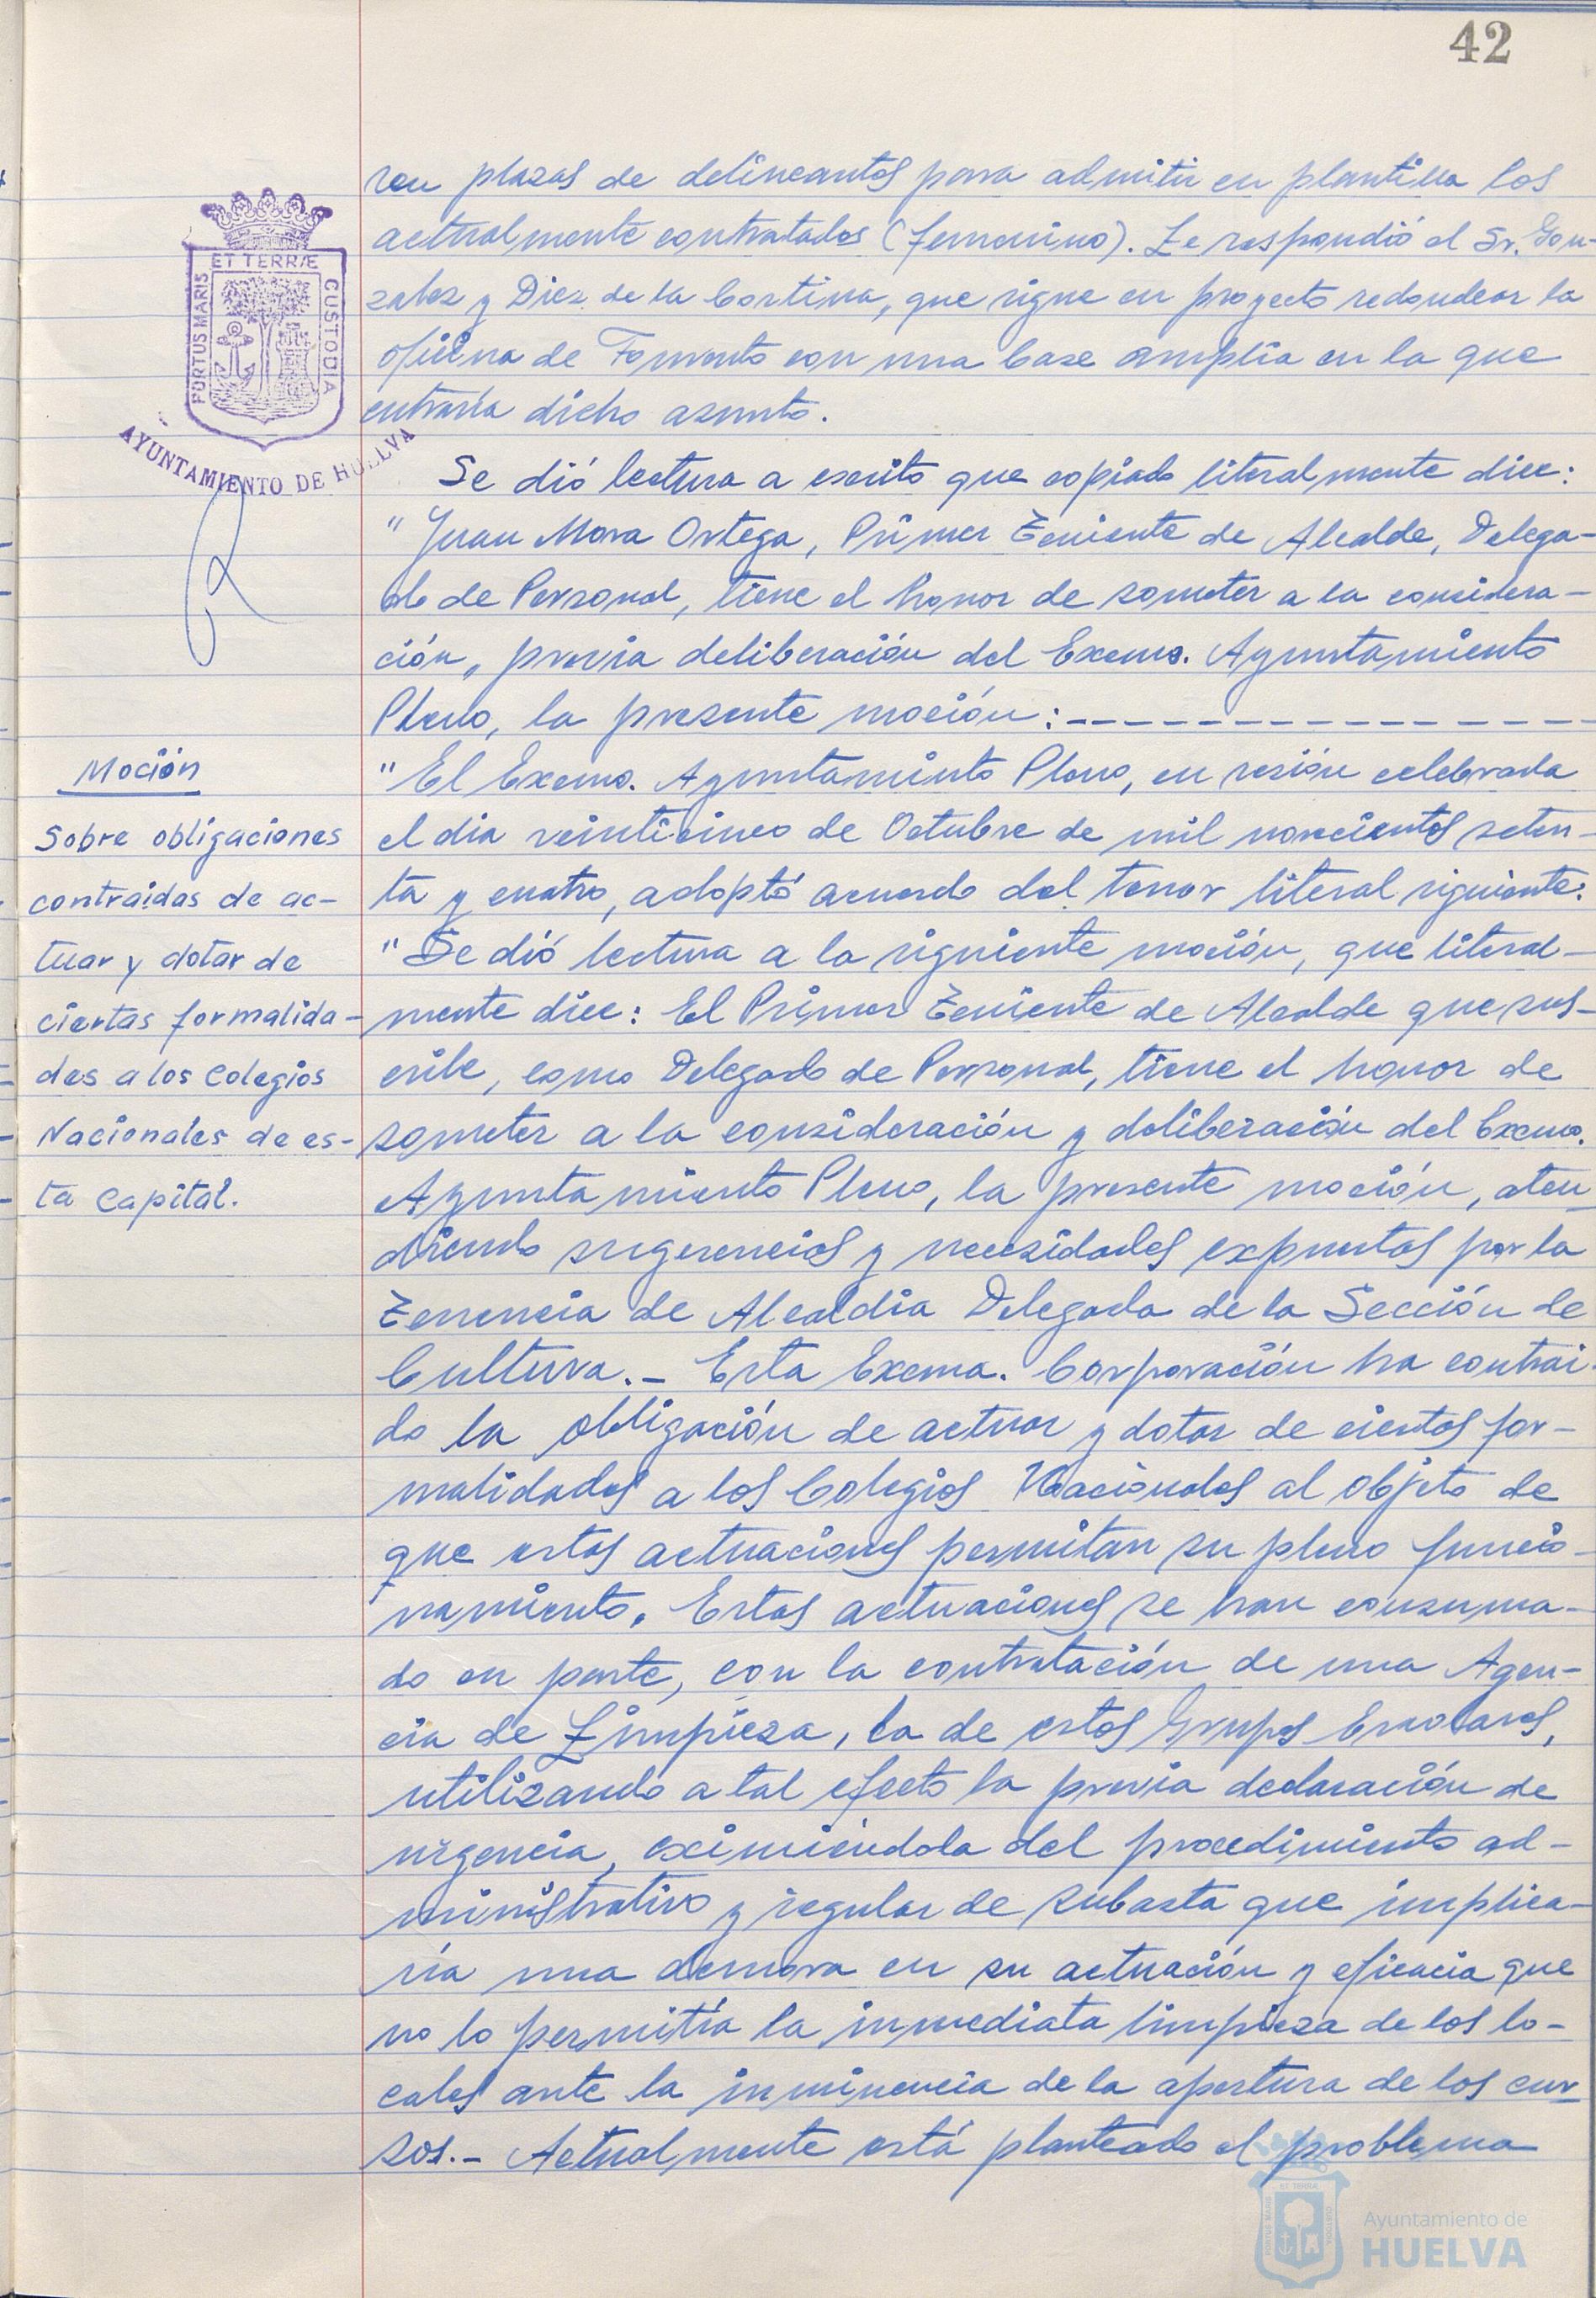 42
ren plazas de delineantes para admitir en plantilla los
actualmente contratados (femenino). Le respondió el Sr. Gon-
zalez y Diez de la Cortina, que sigue en proyecto redondear la
oficina de Fomento con una base amplia en la que
entraría dicho asunto.
ET TERRÆ
PORTUS MARIS
CUSTODIA
AYUNTAMIENTO DE HUELVA
Se dió lectura a escrito que copiado literalmente dice:
"Juan Mora Ortega, Primer Teniente de Alcalde, Delega-
do de Personal, tiene el honor de someter a la considera-
ción, previa deliberación del Excmo. Ayuntamiento
Pleno, la presente moción:
Moción
Sobre obligaciones
contraidas de ac-
tuar y dotar de
ciertas formalida-
des a los Colegios
Nacionales de es-
ta Capital.
"El Excmo. Ayuntamiento Pleno, en sesión celebrada
el dia veinticinco de Octubre de mil novecientos seten-
ta y cuatro, adoptó acuerdo del tenor literal siguiente:
"Se dió lectura a la siguiente moción, que literal-
mente dice: El Primer Teniente de Alcalde que sus-
cribe, como Delegado de Personal, tiene el honor de
someter a la consideración y deliberación del Excmo.
Ayuntamiento Pleno, la presente moción, aten
diendo sugerencias y necesidades expuestas por la
Tenencia de Alcaldia Delegada de la Sección de
Cultura.- Esta Excma. Corporación ha contrai-
do la obligación de actuar y dotar de ciertas for-
malidades a los Colegios Nacionales al objeto de
que estas actuaciones permitan su pleno funcio-
namiento. Estas actuaciones se han consuma-
do en parte, con la contratación de una Agen-
cia de Limpieza, la de estos Grupos Escolares,
utilizando a tal efecto la previa declaración de
urgencia, eximiéndola del procedimiento ad-
ministrativo y regular de subasta que implica-
ría una demora en su actuación y eficacia que
no lo permitía la inmediata limpieza de los lo-
cales ante la inminencia de la apertura de los cur
sos.- Actualmente está planteado el problema
Ayuntamiento de
HUELVA